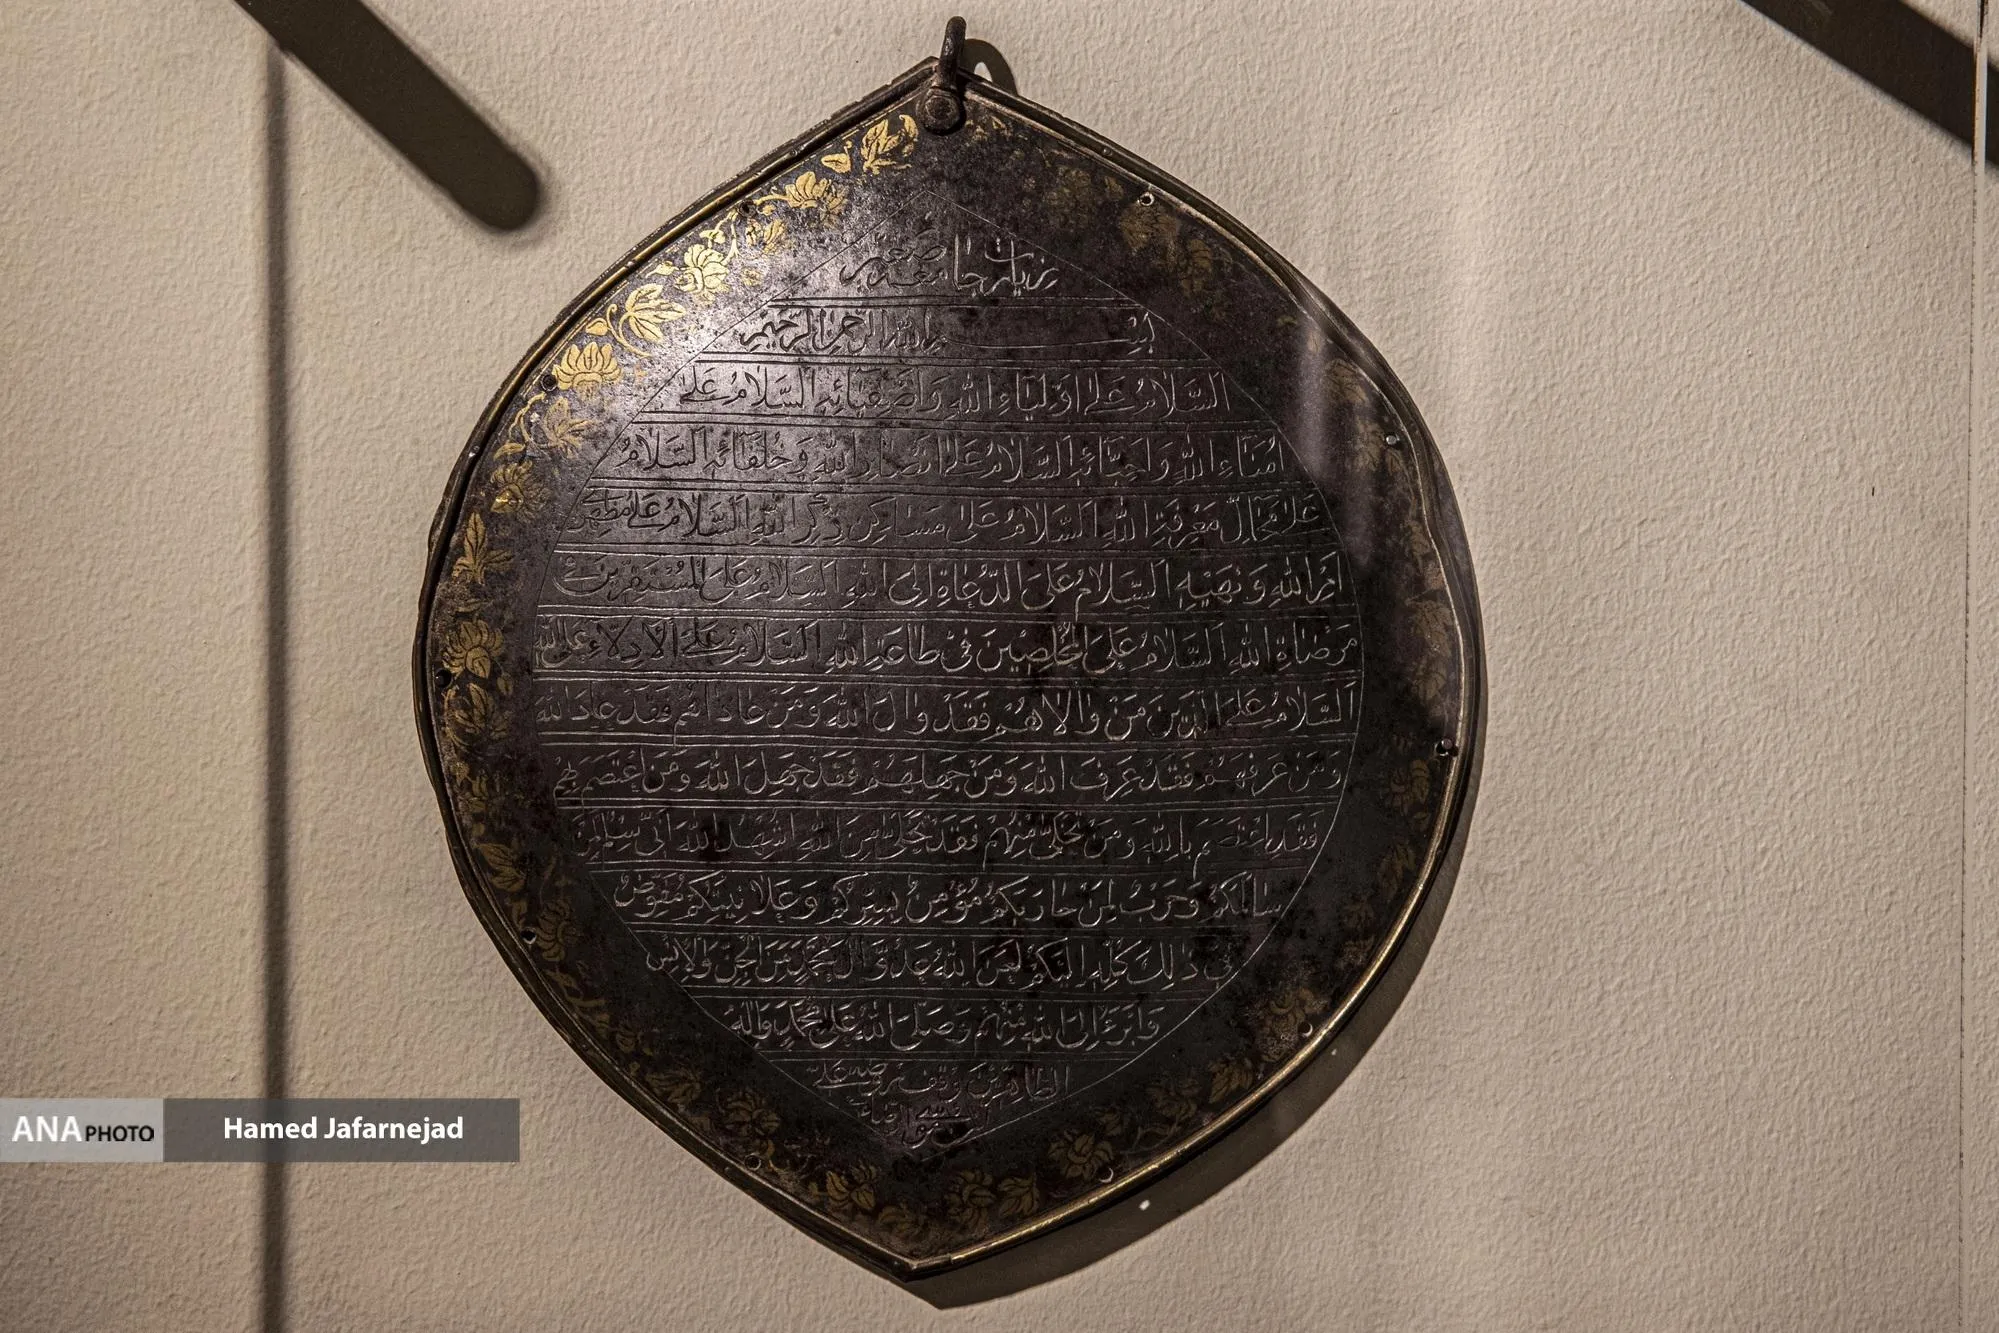 زیارت جامعه صغیر
بسم الله الرحمن الرحیم
اَلسَّلامُ عَلی اَولیاءِ اللهِ وَاَصفیائِهِ اَلسَّلامُ عَلی
اُمَناءِ اللهِ وَاَحِبّائِهِ اَلسَّلامُ عَلی اَنصارِ اللهِ وَخُلَفائِهِ اَلسَّلامُ
عَلی مَحالِّ مَعرِفَةِ اللهِ اَلسَّلامُ عَلی مَساکِنِ ذِکرِ اللهِ اَلسَّلامُ عَلی مظهری
اَمرِ اللهِ وَ نَهیِهِ اَلسَّلامُ عَلَی الدُّعاةِ اِلَی اللهِ اَلسَّلامُ عَلَی المُستَقِرّینَ فی
مَرضاةِ اللهِ اَلسَّلامُ عَلَی المُخلِصینَ فی طاعَةِ اللهِ اَلسَّلامُ عَلَی الاَدِلّاءِ عَلَی اللهِ
اَلسَّلامُ عَلَی الَّذینَ مَن والاهُم فَقَد والَ اللهَ وَمَن عاداهُم فَقَد عادَ اللهَ
وَمَن عَرَفَهُم فَقَد عَرَفَ اللهَ وَمَن جَهِلَهُم فَقَد جَهِلَ اللهَ وَمَنِ اعتَصَمَ بِهِم
فَقَدِ اعتَصَمَ بِاللهِ وَمَن تَخَلّی مِنهُم فَقَد تَخَلّی مِنَ اللهِ اُشهِدُ اللهَ اَنّی سِلمٌ لِمَن
سالَمَکُم وَحَربٌ لِمَن حارَبَکُم مُؤمِنٌ بِسِرِّکُم وَعَلانِیَتِکُم مُفَوِّضٌ
فی ذلِکَ کُلِّهِ اِلَیکُم لَعَنَ اللهُ عَدُوَّ آلِ مُحَمَّدٍ مِنَ الجِنِّ وَالاِنسِ
وَاَبرَءُ اِلَی اللهِ مِنهُم وَصَلَّی اللهُ عَلی مُحَمَّدٍ وَآلِهِ
الطّاهِرینَ وقف
ANA PHOTO
Hamed Jafarnejad